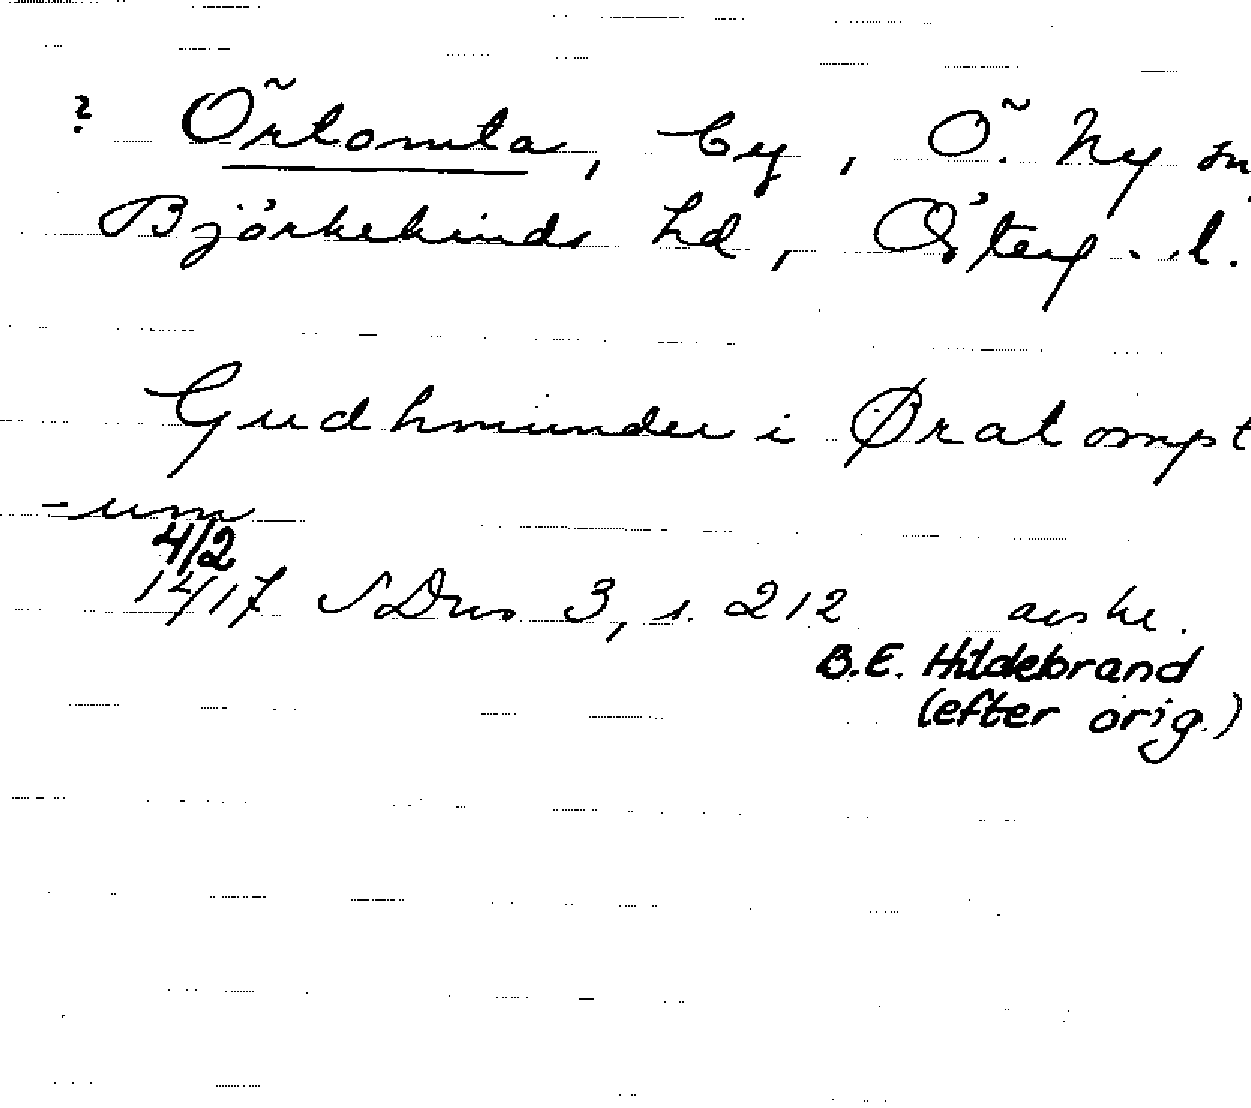 ? Örtomta, by, Ö. Ny sn,
Björkekinds hd, Österg. l.
Gudhmunder i Øratompt
-um
4/2
1417 SDns 3, s. 212 avskr.
B.E. Hildebrand
(efter orig.)